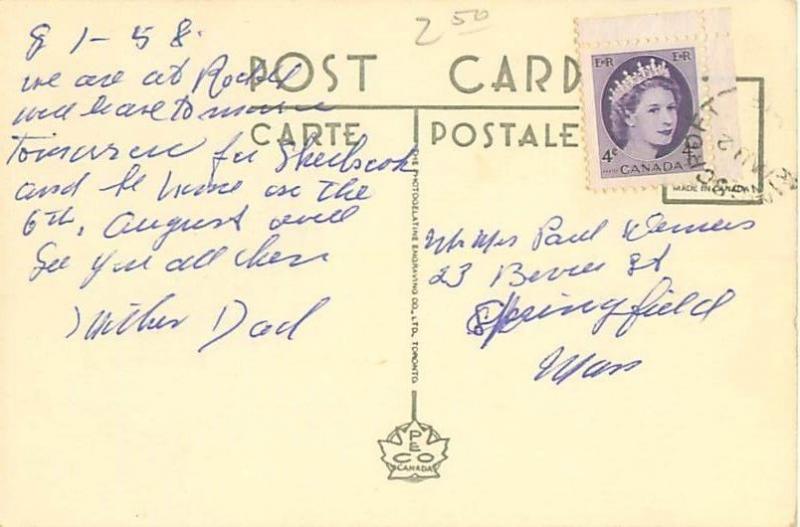 2 50
8 1-58.
we are at
will leave
tomorrow for Sherbrook
and be home on the
6th, August and
See you all then
Mother Dad
POST CARD
CARTE POSTALE
E R E R
4c 4c
CANADA
MADE IN CANADA
Mr Mrs Paul
23 St
Springfield
Mass
THE PHOTOGELATINE ENGRAVING CO., LTD., TORONTO
PECO
CANADA